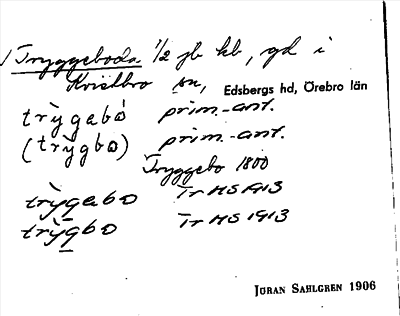 Tryggeboda 1/2 jb kb, gd i
Kvistbro sn, Edsbergs hd, Örebro län
trỳgabó prim.-ant.
(trỳgbo) prim.-ant.
Tryggebo 1800
trỳgabo Tr HS 1913
trỳgbo Tr HS 1913
JÖRAN SAHLGREN 1906